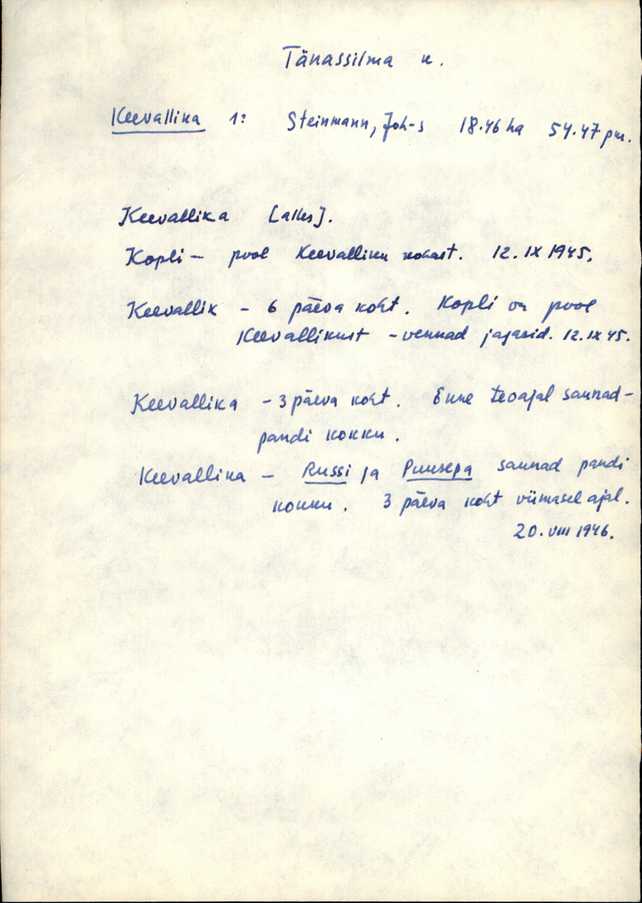 Tänassilma k.
Keevallika 1: Steinmann, Joh-s 18.46 ha 54.47 pm.
Keevallika [alles].
Kopli - pool Keevalliku kohast. 12. IX 1945.
Keevallik - 6 päeva koht. Kopli on pool
Keevallikust - vennad jagasid. 12. IX 45.
Keevallika - 3 päeva koht. Enne teoajal saunad-
pandi kokku.
Keevallika - Russi ja Puusepa saunad pandi
kokku. 3 päeva koht viimasel ajal.
20. VIII 1946.